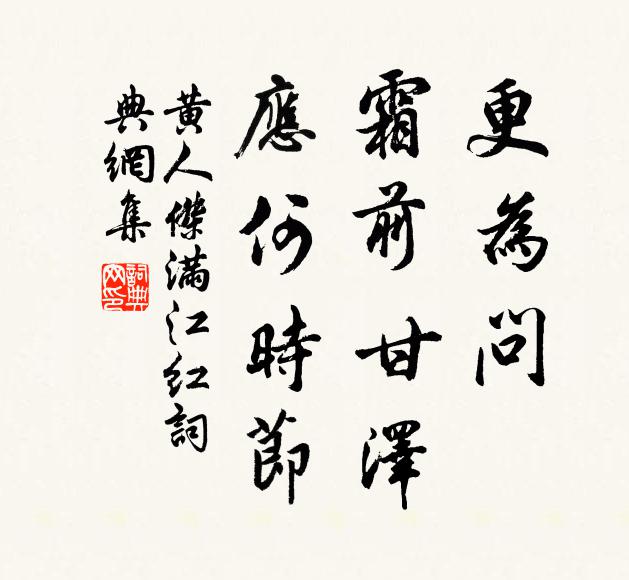 更為問
霜前甘澤
應何時節
黃人傑滿江紅詞
典網集
詞典
网印